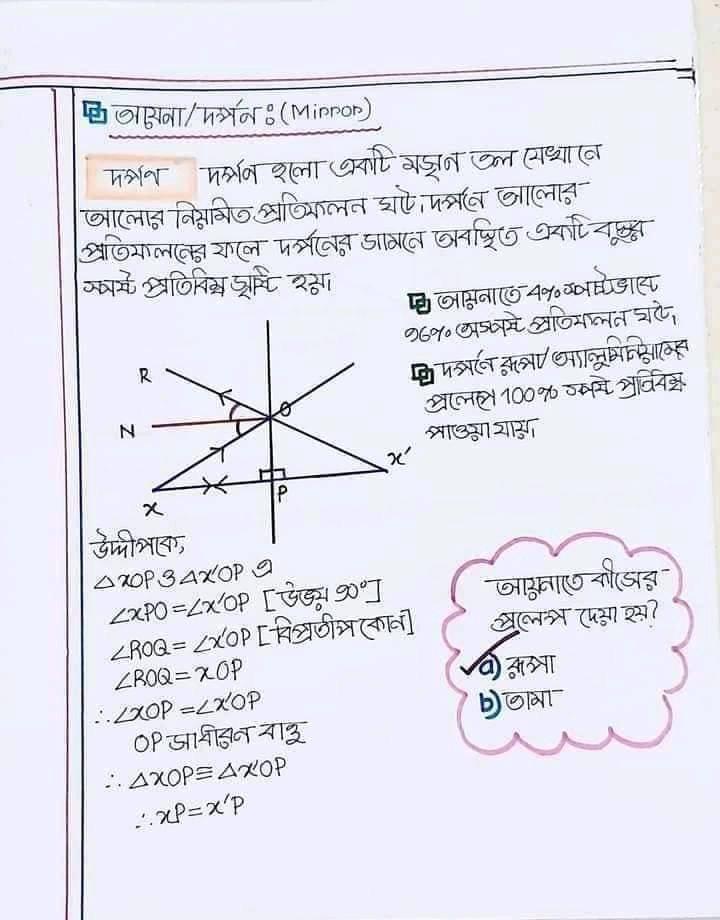 আয়না/দর্পন ঃ (Mirror)
দর্পণ দর্পণ হলো একটি মসৃন তল যেখানে
আলোর নিয়মিত প্রতিফলন ঘটে। দর্পনে আলোর
প্রতিফলনের ফলে দর্পনের সামনে অবস্থিত একটি বস্তুর
স্পষ্ট প্রতিবিম্ব সৃষ্টি হয়।
আয়নাতে 4% স্পষ্টভাবে
96% অস্পষ্ট প্রতিফলন ঘটে।
দর্পনে রূপা/অ্যালুমিনিয়ামের
প্রলেপে 100% স্পষ্ট প্রতিবিম্ব
পাওয়া যায়।
R
O
N
x'
P
x
উদ্দীপকে,
△XOP ও △X'OP এ
∠XPO = ∠X'OP [উভয় 90°]
∠ROQ = ∠X'OP [বিপ্রতীপ কোন]
∠ROQ = XOP
∴ ∠XOP = ∠X'OP
OP সাধারন বাহু
∴ △XOP ≅ △X'OP
∴ XP = X'P
আয়নাতে কীসের
প্রলেপ দেয়া হয়?
a) রূপা
b) তামা